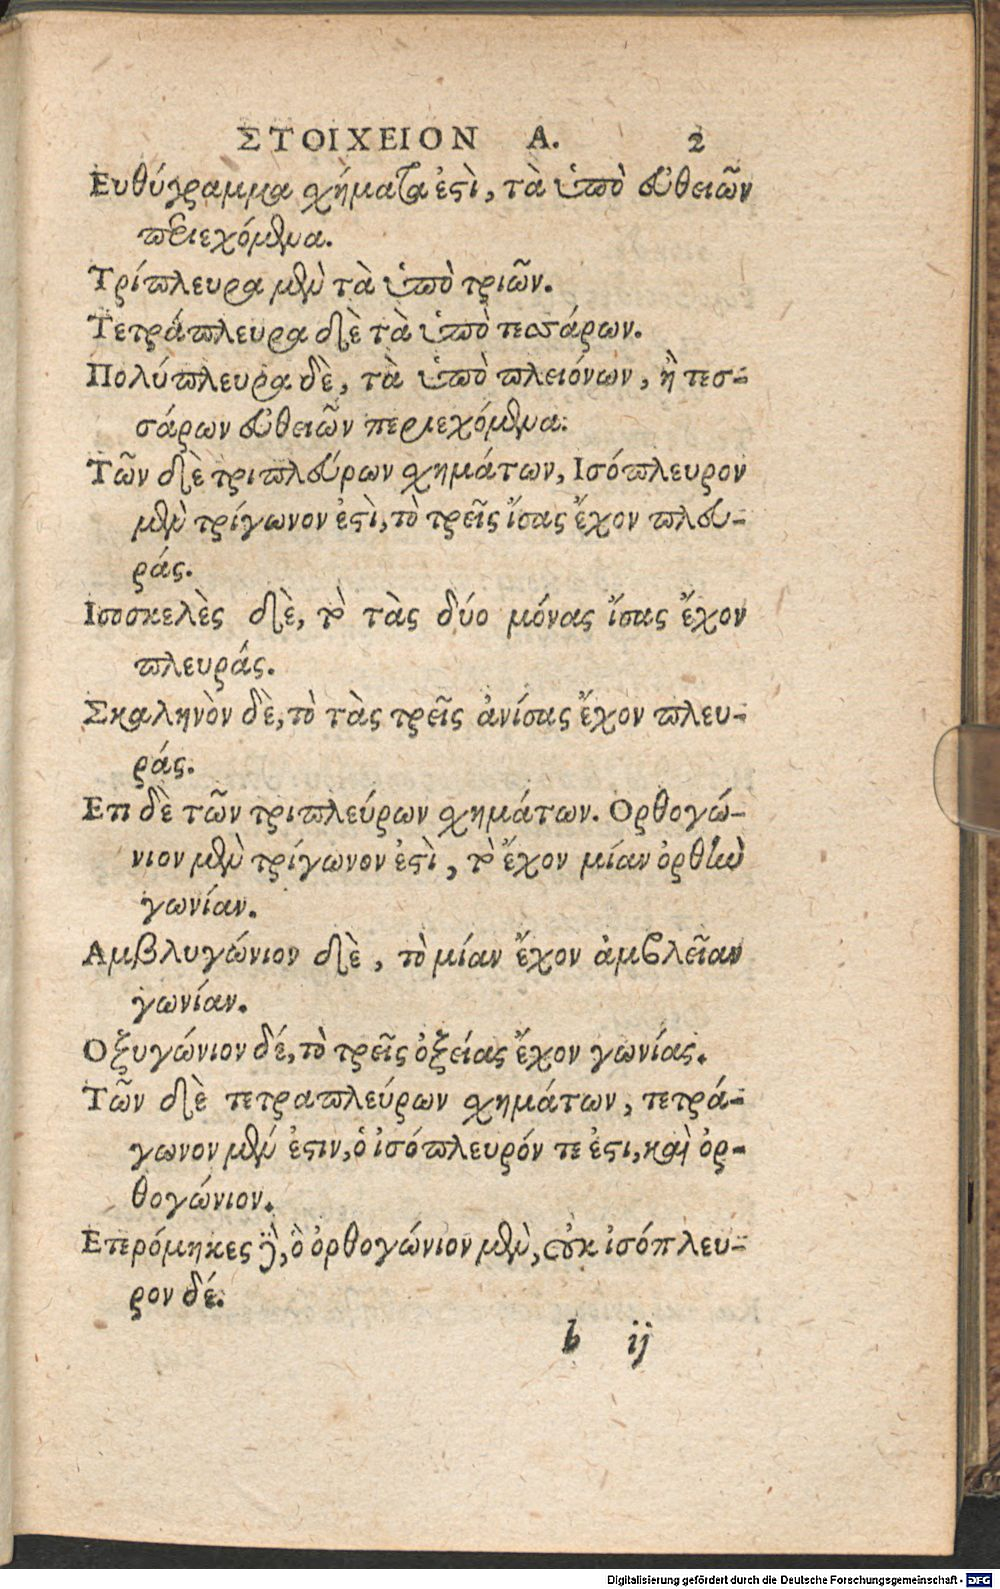 ΣΤΟΙΧΕΙΟΝ Α. 2
Ευθύγραμμα σχήματα ἐστὶ, τὰ ὑπὸ εὐθειῶν
περιεχόμενα.
Τρίπλευρα μὲν τὰ ὑπὸ τριῶν.
Τετράπλευρα δὲ τὰ ὑπὸ τεσσάρων.
Πολύπλευρα δὲ, τὰ ὑπὸ πλειόνων, ἢ τεσ-
σάρων εὐθειῶν περιεχόμενα.
Τῶν δὲ τριπλεύρων σχημάτων, Ισόπλευρον
μὲν τρίγωνον ἐστὶ, τὸ τρεῖς ἴσας ἔχον πλευ-
ράς.
Ισοσκελὲς δὲ, τὸ τὰς δύο μόνας ἴσας ἔχον
πλευράς.
Σκαληνὸν δὲ, τὸ τὰς τρεῖς ἀνίσας ἔχον πλευ-
ράς.
Επ δὲ τῶν τριπλεύρων σχημάτων. Ορθογώ-
νιον μὲν τρίγωνον ἐστὶ, τὸ ἔχον μίαν ὀρθὴν
γωνίαν.
Αμβλυγώνιον δὲ, τὸ μίαν ἔχον ἀμβλεῖαν
γωνίαν.
Οξυγώνιον δέ, τὸ τρεῖς ὀξείας ἔχον γωνίας.
Τῶν δὲ τετραπλεύρων σχημάτων, τετρά-
γωνον μέν ἐστιν, ὁ ἰσόπλευρόν τε ἐστι, καὶ ὀρ-
θογώνιον.
Ετερόμηκες δὲ, ὃ ὀρθογώνιον μὲν, οὐκ ἰσόπλευ-
ρον δέ.
b ij
Digitalisierung gefördert durch die Deutsche Forschungsgemeinschaft - DFG